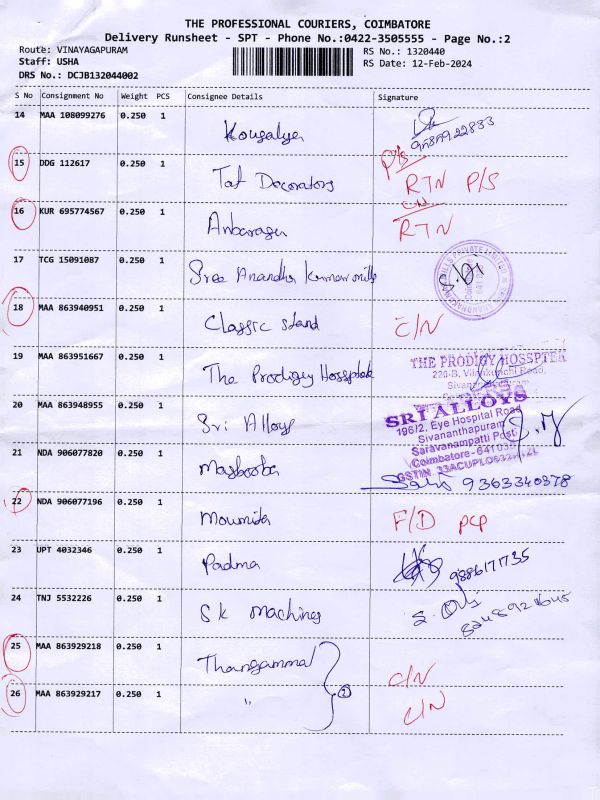 THE PROFESSIONAL COURIERS, COIMBATORE
Delivery Runsheet - SPT - Phone No.:0422-3505555 - Page No.:2
Route: VINAYAGAPURAM RS No.: 1320440
Staff: USHA RS Date: 12-Feb-2024
DRS No.: DCJB132044002
S No Consignment No Weight PCS Consignee Details Signature
14 MAA 108099276 0.250 1 Kousalya
15 DDG 112617 0.250 1 Tat Decorators P/S RTN P/S
16 KUR 695774567 0.250 1 Anbarasu C/N RTN
17 TCG 15091087 0.250 1 Sree Anandha Kumar mills
18 MAA 863940951 0.250 1 Classic stand C/N
19 MAA 863951667 0.250 1 The Prodigy Hossptek THE PRODIGY HOSSPTEK
20 MAA 863948955 0.250 1 Sri Alloys SRI ALLOYS
196/2, Eye Hospital Road
Sivananthapuram
Saravanampatti Post
Coimbatore-641035
21 NDA 906077820 0.250 1 Masbooba 9363340378
22 NDA 906077196 0.250 1 Mounida F/D PCP
23 UPT 4032346 0.250 1 Padma 9886171735
24 TNJ 5532226 0.250 1 S.K Machines
25 MAA 863929218 0.250 1 Thangammal C/N
26 MAA 863929217 0.250 1 " 2 C/N